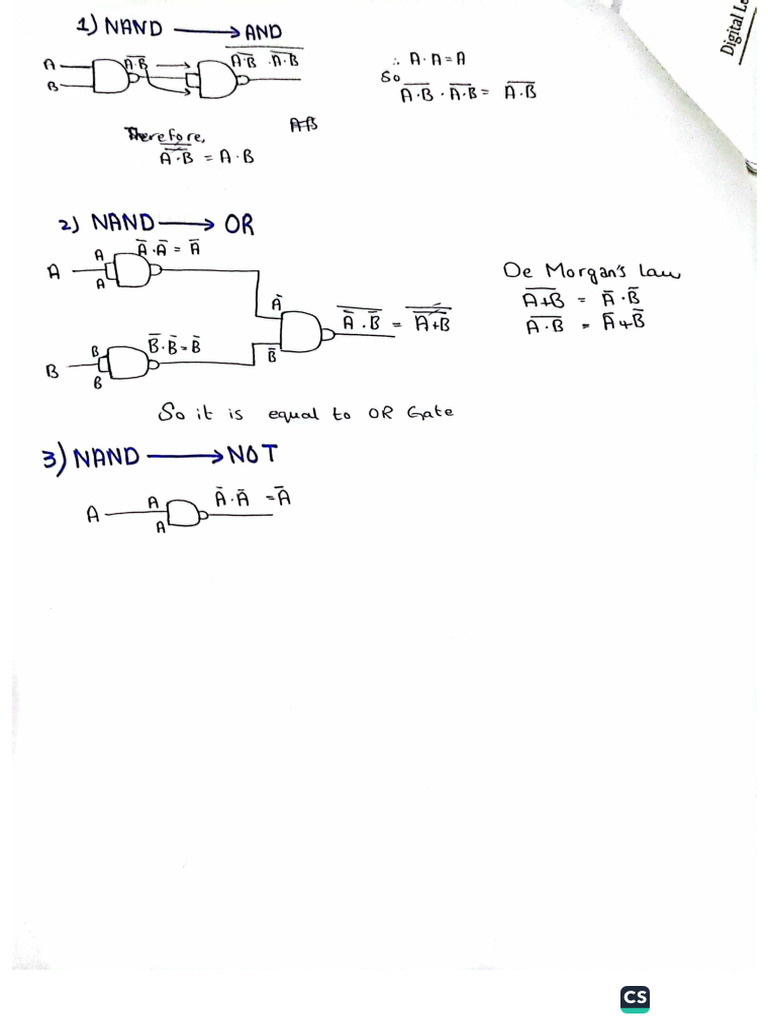 Digital Lo
1) NAND → AND
A
B
A̅·̅B̅
A̅·̅B̅ · A̅·̅B̅
∴ A·A = A
So
A̅·̅B̅ · A̅·̅B̅ = A̅·̅B̅
Therefore,
A·B = A·B
2) NAND → OR
A
A
A
Ā·Ā = Ā
B
B
B
B̄·B̄ = B̄
Ā
B̄
Ā·B̄ = A+B
De Morgan's law
A̅+̅B̅ = Ā·B̄
A̅·̅B̅ = Ā+B̄
So it is equal to OR Gate
3) NAND → NOT
A
A
A
Ā·Ā = Ā
CS